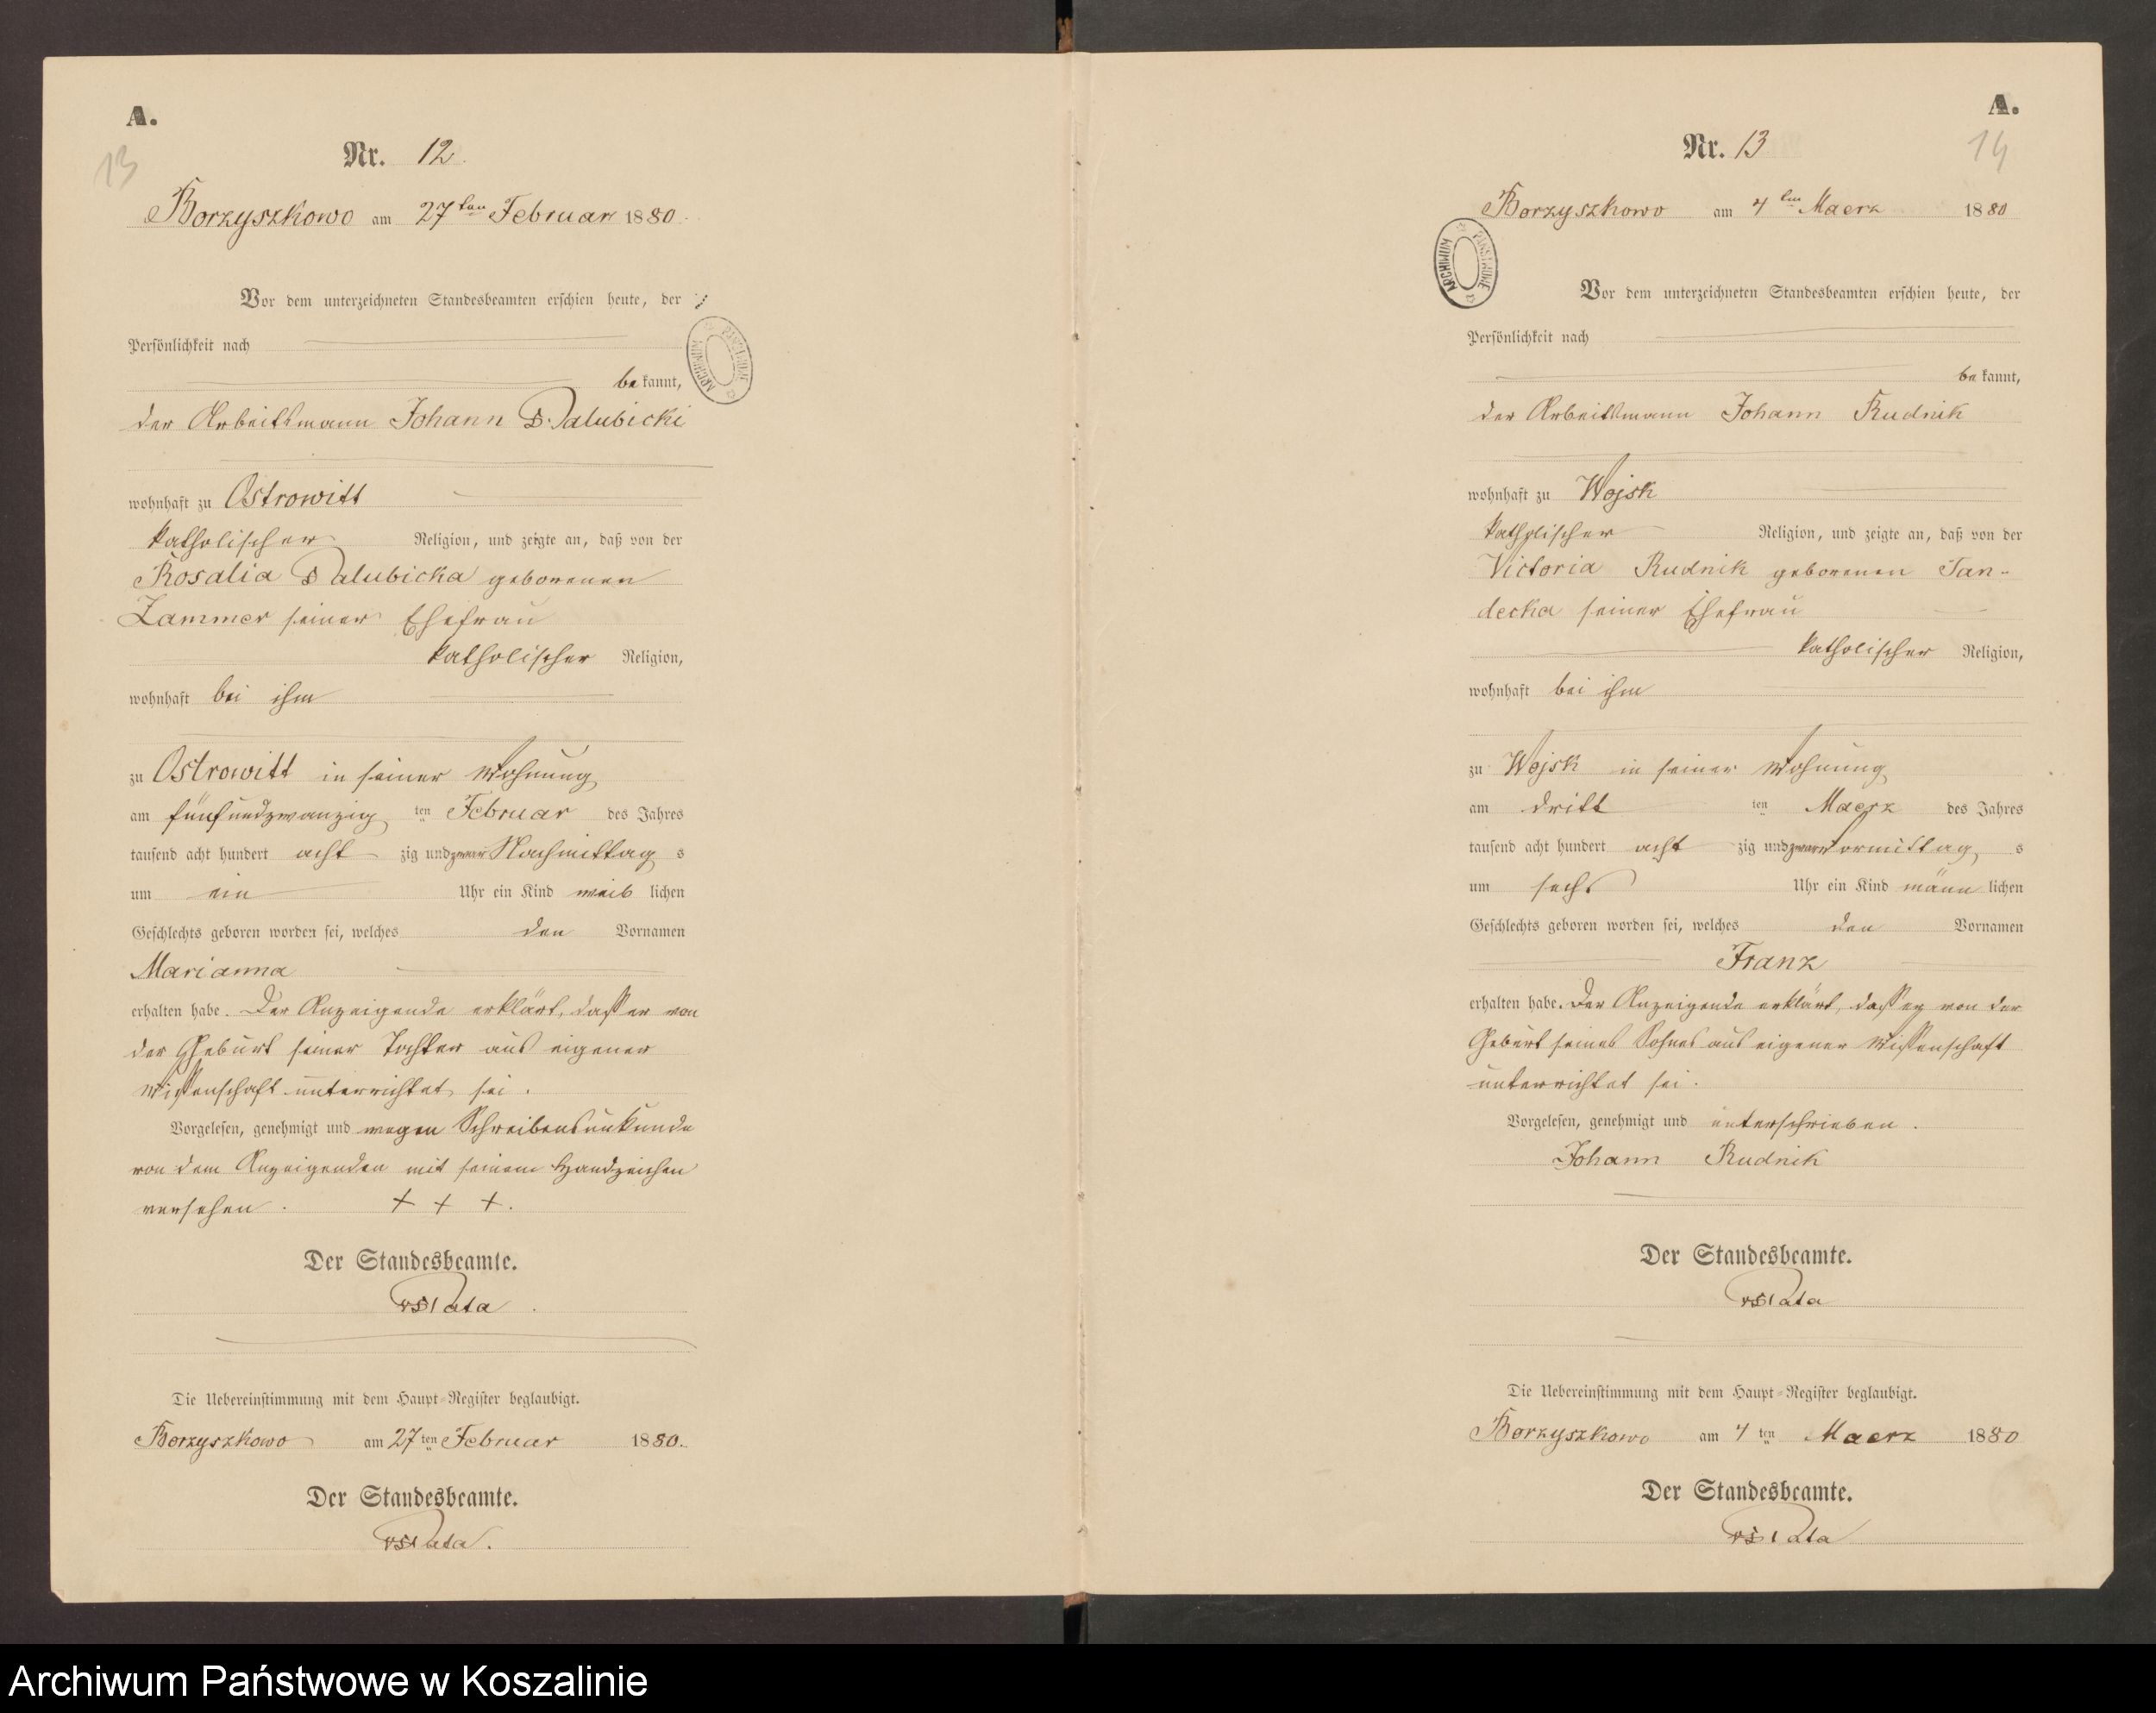 A.
13
Nr. 12.
Borzyszkowo am 27ten Februar 1880.
Vor dem unterzeichneten Standesbeamten erschien heute, der
Persönlichkeit nach
bekannt,
der Arbeitsmann Johann Palubicki
wohnhaft zu Ostrowitt
katholischer Religion, und zeigte an, daß von der
Rosalia Palubicka geborenen
Zammer seiner Ehefrau
katholischer Religion,
wohnhaft bei ihm
zu Ostrowitt in seiner Wohnung
am fünfundzwanzig ten Februar des Jahres
tausend acht hundert acht zig und zwar Nachmittag s
um ein Uhr ein Kind weib lichen
Geschlechts geboren worden sei, welches den Vornamen
Marianna
erhalten habe. Der Anzeigende erklärt, dasser von
der Geburt seiner Tochter aus eigener
Wissenschaft unterrichtet sei.
Vorgelesen, genehmigt und wegen Schreibensunkunde
von dem Anzeigenden mit seinem Handzeichen
versehen. + + +.
Der Standesbeamte.
Die Uebereinstimmung mit dem Haupt-Register beglaubigt.
Borzyszkowo am 27ten Februar 1880.
Der Standesbeamte.
A.
14
Nr. 13
Borzyszkowo am 4ten Maerz 1880
ARCHIWUM PAŃSTWOWE
Vor dem unterzeichneten Standesbeamten erschien heute, der
Persönlichkeit nach
bekannt,
der Arbeitsmann Johann Rudnik
wohnhaft zu Wojsk
katholischer Religion, und zeigte an, daß von der
Victoria Rudnik geborenen Jan-
decka seiner Ehefrau
katholischer Religion,
wohnhaft bei ihm
zu Wojsk in seiner Wohnung
am dritt ten Maerz des Jahres
tausend acht hundert acht zig und zwar Vormittag s
um sechs Uhr ein Kind männ lichen
Geschlechts geboren worden sei, welches den Vornamen
Franz
erhalten habe. Der Anzeigende erklärt, dasser von der
Geburt seines Sohnes aus eigener Wissenschaft
unterrichtet sei.
Vorgelesen, genehmigt und unterschrieben.
Johann Rudnik
Der Standesbeamte.
Die Uebereinstimmung mit dem Haupt-Register beglaubigt.
Borzyszkowo am 4ten Maerz 1880
Der Standesbeamte.
Archiwum Państwowe w Koszalinie